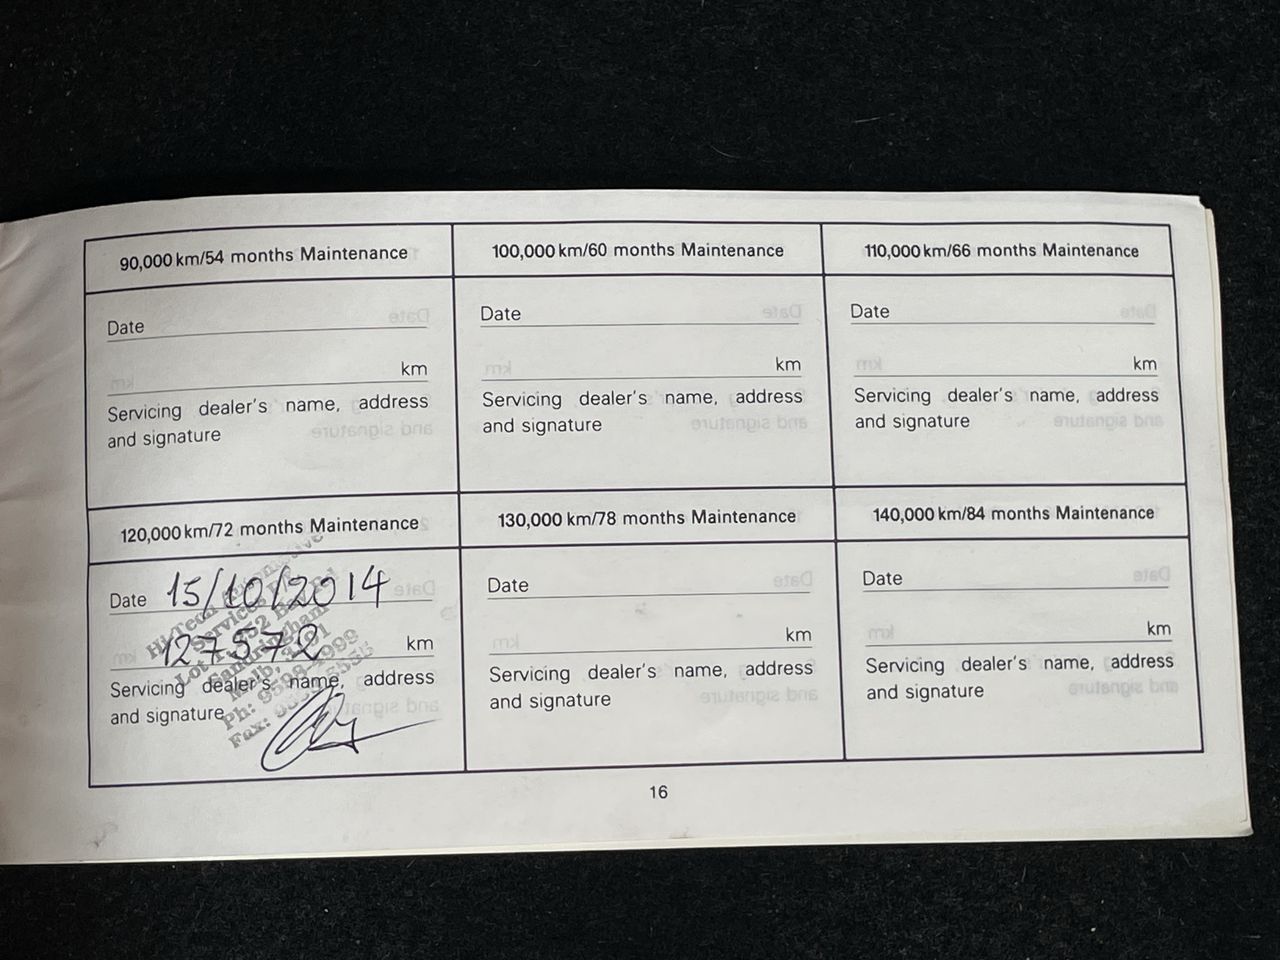 90,000 km/54 months Maintenance
Date
km
Servicing dealer's name, address
and signature
100,000 km/60 months Maintenance
Date
km
Servicing dealer's name, address
and signature
110,000 km/66 months Maintenance
Date
km
Servicing dealer's name, address
and signature
120,000 km/72 months Maintenance
Date 15/10/2014
127572 km
Servicing dealer's name, address
and signature
Hi-Tech
Services
Sandringham
Ph:
Fax:
130,000 km/78 months Maintenance
Date
km
Servicing dealer's name, address
and signature
140,000 km/84 months Maintenance
Date
km
Servicing dealer's name, address
and signature
16